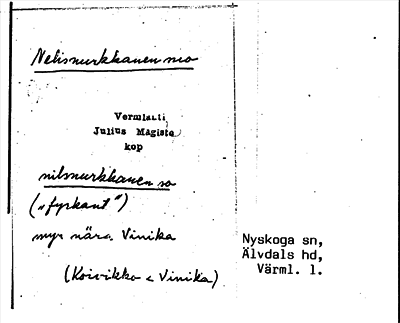 Nelismurkkauensuo
Vermlanti
Julius Mägiste
kop
nilmurkkauenso
("fyrkant")
myr nära Vinika
(Koivikko < Vinika)
Nyskoga sn,
Älvdals hd,
Värml. l.